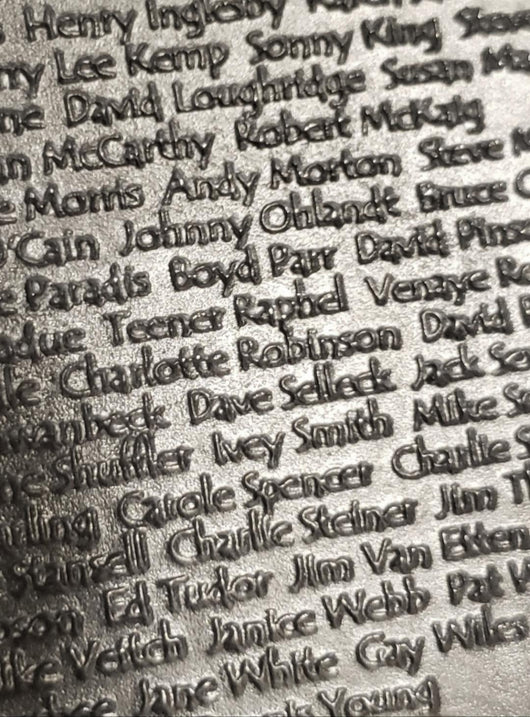 Henry Inglesby
Lee Kemp Sonny King
David Loughridge Susan
McCarthy Robert McKaig
Morris Andy Morton Steve
O'Cain Johnny Ohlandt Bruce
Paradis Boyd Parr David
Teener Raphel Venaye
Charlotte Robinson David
Dave Selleck Jack
Shuffler Ivey Smith Mike
Carole Spencer Charlie
Stansell Charlie Steiner Jim
Ed Tudor Jim Van Etten
Veitch Janice Webb Pat
Jane White Gay Wiles
Young